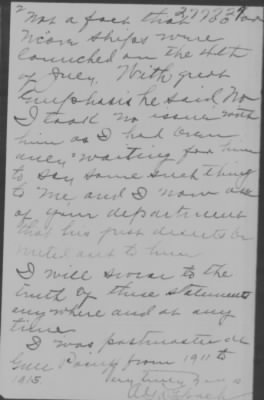 Not a fact that 377839 our
ships were
launched on the 4th
of July. With great
Emphasis he said No
I took no issue with
him as I had been
waiting for him
to say some such thing
to me and I now ask
of your department
that his just deserts be
meted out to him
I will swear to the
truth of these statements
anywhere and at any
time
I was postmaster at
from 1911 to
1915 Very truly yours